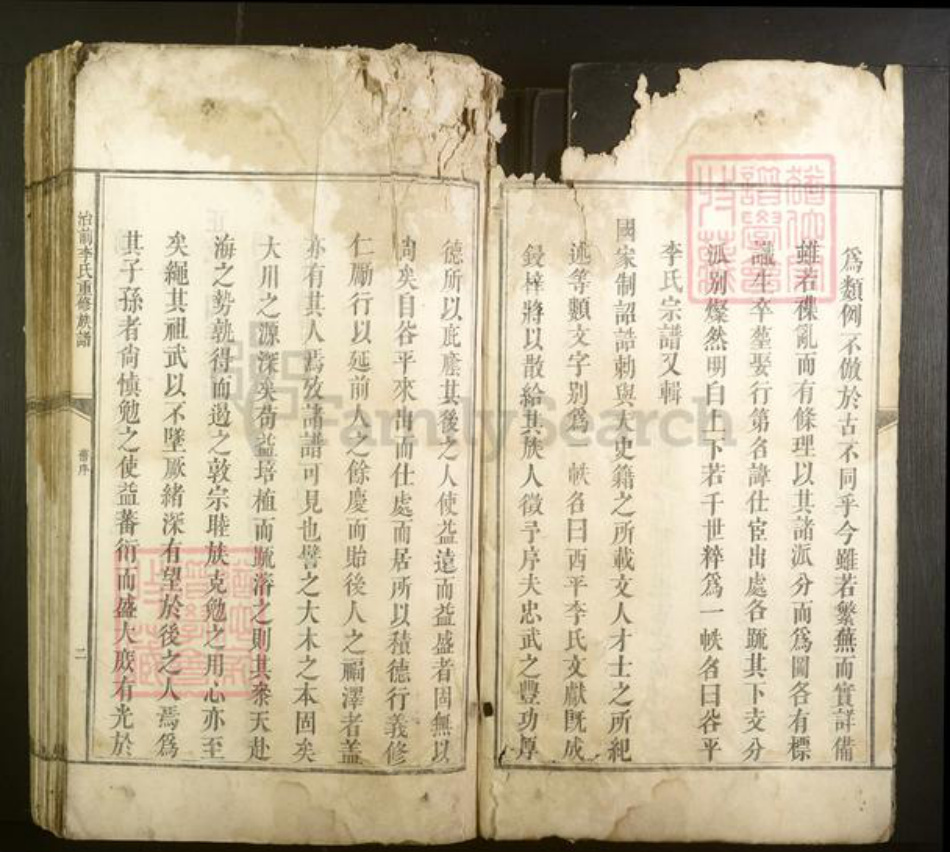 為類例不倣於古不同乎今雖若繁蕪而實詳備
雖若襍亂而有條理以其諸派分而為圖各有標
識生卒塟娶行第名諱仕宦出處各疏其下支分
派別燦然明白上下若千世粹為一帙名曰谷平
李氏宗譜又輯
國家制詔誥勅與大史籍之所載文人才士之所紀
述等類文字別為一帙名曰西平李氏文獻既成
鋟梓將以散給其族人徵予序夫忠武之豐功厚
德所以庇廕其後之人使益遠而益盛者固無以
尚矣自谷平來出而仕處而居所以積德行義修
仁勵行以延前人之餘慶而貽後人之福澤者蓋
亦有其人焉攷諸譜可見也譬之大木之本固矣
大川之源深矣苟益培植而疏濬之則其參天赴
海之勢孰得而遏之敦宗睦族克勉之用心亦至
矣繩其祖武以不墜厥緒深有望於後之人焉為
其子孫者尚慎勉之使益蕃衍而盛大庶有光於
治前李氏重修族譜
舊序
二
FamilySearch